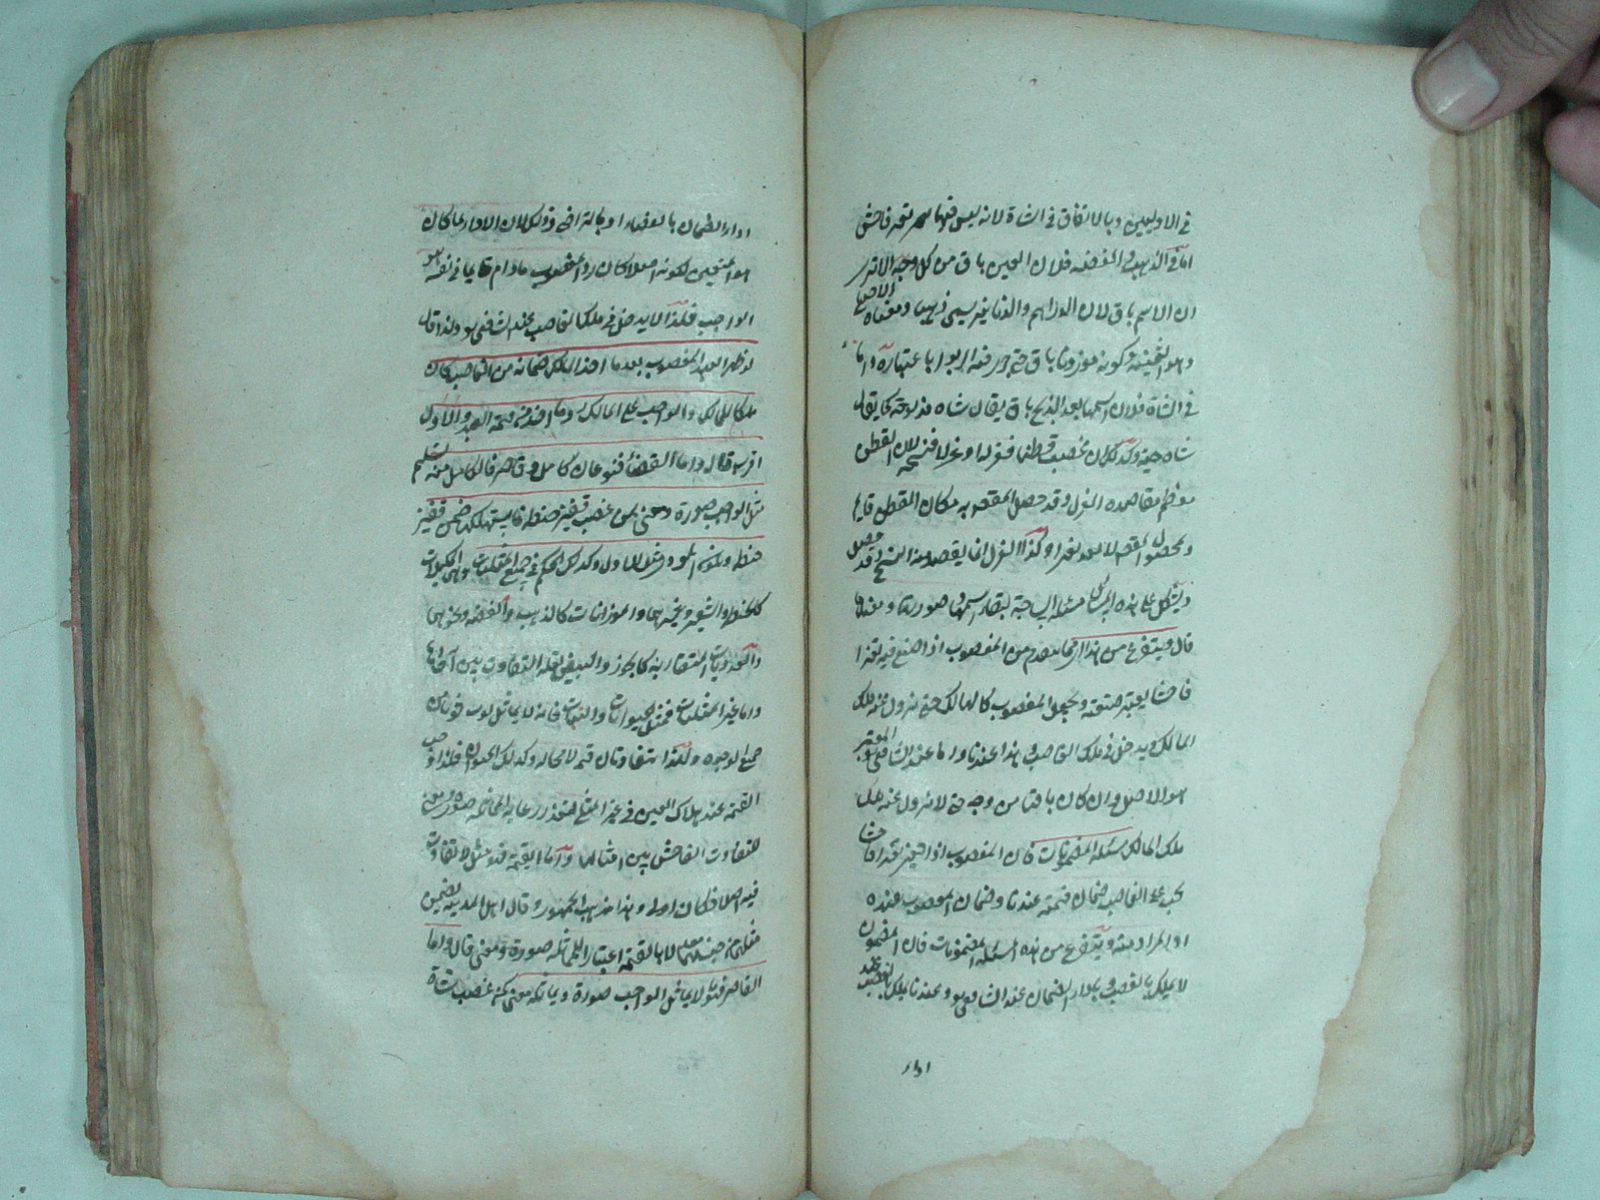 في الاوليين وبالاتفاق في الشاة لانه ليس فيها تغير فاحش
اما في الذهب والفضة فلان العين باق من كل وجه الا ترى
ان الاسم باق لان الدراهم والدنانير يسمى ذهبا ومعناه الاصلي
وهو الثمنية وكونه موزونا باق حتى جرى فيه الربوا باعتباره واما
في الشاة فلان اسمها بعد الذبح باق يقال شاة مذبوحة كما يقال
شاة حية وكذلك ان غصب قطنا فغزله او غزلا فنسجه لان القطن
معظم مقاصده الغزل وقد حصل المقصود به مكان القطن قايم
وبحصول المقصود لا يعد تغيرا وكذا الغزل انما يقصد منه النسج وقد حصل
ويشكل على هذه المسائل مسئلة الساجة لبقاء اسمها صورة ومعنى
قال ويتفرع من هذا المغصوب اذا صنع فيه تغيرا
فاحشا يعتبر صنعته ويجعل المغصوب كالهالك حتى يزول عنه ملك
المالك ويدخل في ملك الغاصب وهذا عندنا واما عند الشافعي المعتبر
هو الاصل وان كان باقيا من وجه حتى لا يزول عنه
ملك المالك مسئلة المضمونات فان المغصوب اذا تغير تغيرا فاحشا
يجب على الغاصب ضمان قيمته عندنا وضمان المغصوب عنده
ويتفرع من هذه المسئلة المضمونات فان المضمون
لا يملك بالغصب وباداء الضمان عند الشافعي وعندنا يملك بالغصب عند
اداء
اداء الضمان بالقضاء او بالتراضي وذلك لان الاداء لما كان
هو المتعين لكونه اصلا كان رد المغصوب مادام قايما في نفسه هو
الواجب فلذا لا يدخل في ملك الغاصب عند الشافعي ولذا قال
لو ظهر العبد المغصوب بعد ما اخذ المالك ضمانه من الغاصب كان
ملكا للمالك والواجب على المالك رد ما اخذ من قيمة العبد والاول
اقرب قال واما القضاء فنوعان كامل وقاصر فالكامل منه تسليم
مثل الواجب صورة ومعنى كمن غصب قفيز حنطة فاستهلكها ضمن قفيز
حنطة ويكون المؤدى مثل الاول وكذلك الحكم في جميع المثليات وهي المكيلات
كالحنطة والشعير وغيرهما والموزونات كالذهب والفضة ونحوهما
والعدديات المتقاربة كالجوز والبيض لقلة التفاوت بين آحادها
واما غير المثليات فمثل الحيوانات والثياب فانه لا يماثل ثوب ثوبا من
جميع الوجوه ولهذا يتفاوتان قيمة لا محالة وكذلك الحيوان فلذا وجب
القيمة عند هلاك العين في غير المثلي لتعذر رعاية المماثلة صورة ومعنى
للتفاوت الفاحش بين امثالها واما القيمة فمثل لا تفاوت
فيه اصلا فكان اولى وهذا مذهب الجمهور وقال اهل المدينة يضمن
مثلها من جنسها لا بالقيمة اعتبارا للمماثلة صورة ومعنى قال واما
القاصر فهو لا يماثل الواجب صورة ويماثله معنى كمن غصب شاة